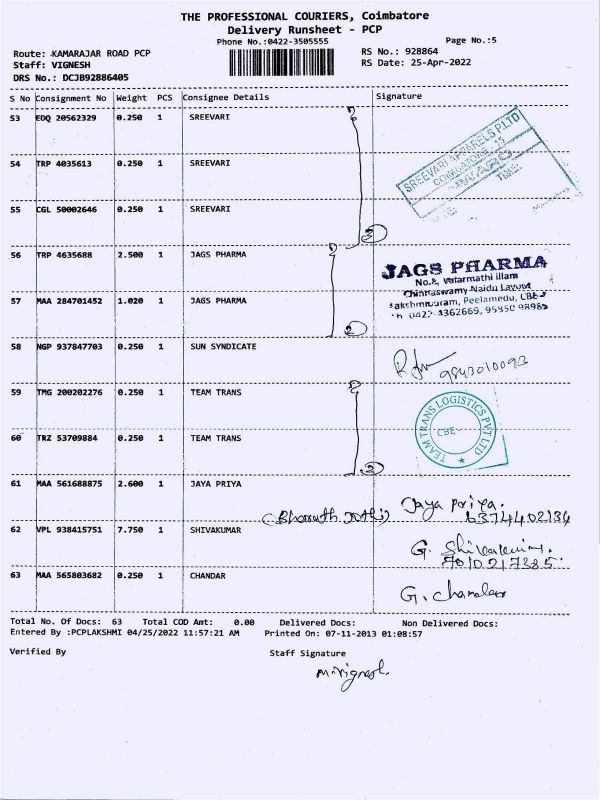 THE PROFESSIONAL COURIERS, Coimbatore
Delivery Runsheet - PCP
Phone No.:0422-3505555
Page No.:5
Route: KAMARAJAR ROAD PCP
RS No.: 928864
Staff: VIGNESH
RS Date: 25-Apr-2022
DRS No.: DCJB92886405
S No Consignment No Weight PCS Consignee Details Signature
53 EDQ 20562329 0.250 1 SREEVARI
SREEVARI APPARELS P LTD
COIMBATORE - 15
TIME
54 TRP 4035613 0.250 1 SREEVARI
55 CGL 50002646 0.250 1 SREEVARI
3
56 TRP 4635688 2.500 1 JAGS PHARMA
JAGS PHARMA
No.2, Valarmathi illam
Chinnaswamy Naidu Layout
Lakshmipuram, Peelamedu, CBE
57 MAA 284701452 1.020 1 JAGS PHARMA
2
58 NGP 937847703 0.250 1 SUN SYNDICATE
9843010093
59 TMG 200202276 0.250 1 TEAM TRANS
TEAM TRANS LOGISTICS PVT LTD
CBE-
60 TRZ 53709884 0.250 1 TEAM TRANS
2
61 MAA 561688875 2.600 1 JAYA PRIYA
Jaya Priya.
6374402134
62 VPL 938415751 7.750 1 SHIVAKUMAR
G. Shivakumar.
7010217385.
63 MAA 565803682 0.250 1 CHANDAR
G. Chandar
Total No. Of Docs: 63 Total COD Amt: 0.00 Delivered Docs: Non Delivered Docs:
Entered By :PCPLAKSHMI 04/25/2022 11:57:21 AM Printed On: 07-11-2013 01:08:57
Verified By Staff Signature
M.Vignesh.